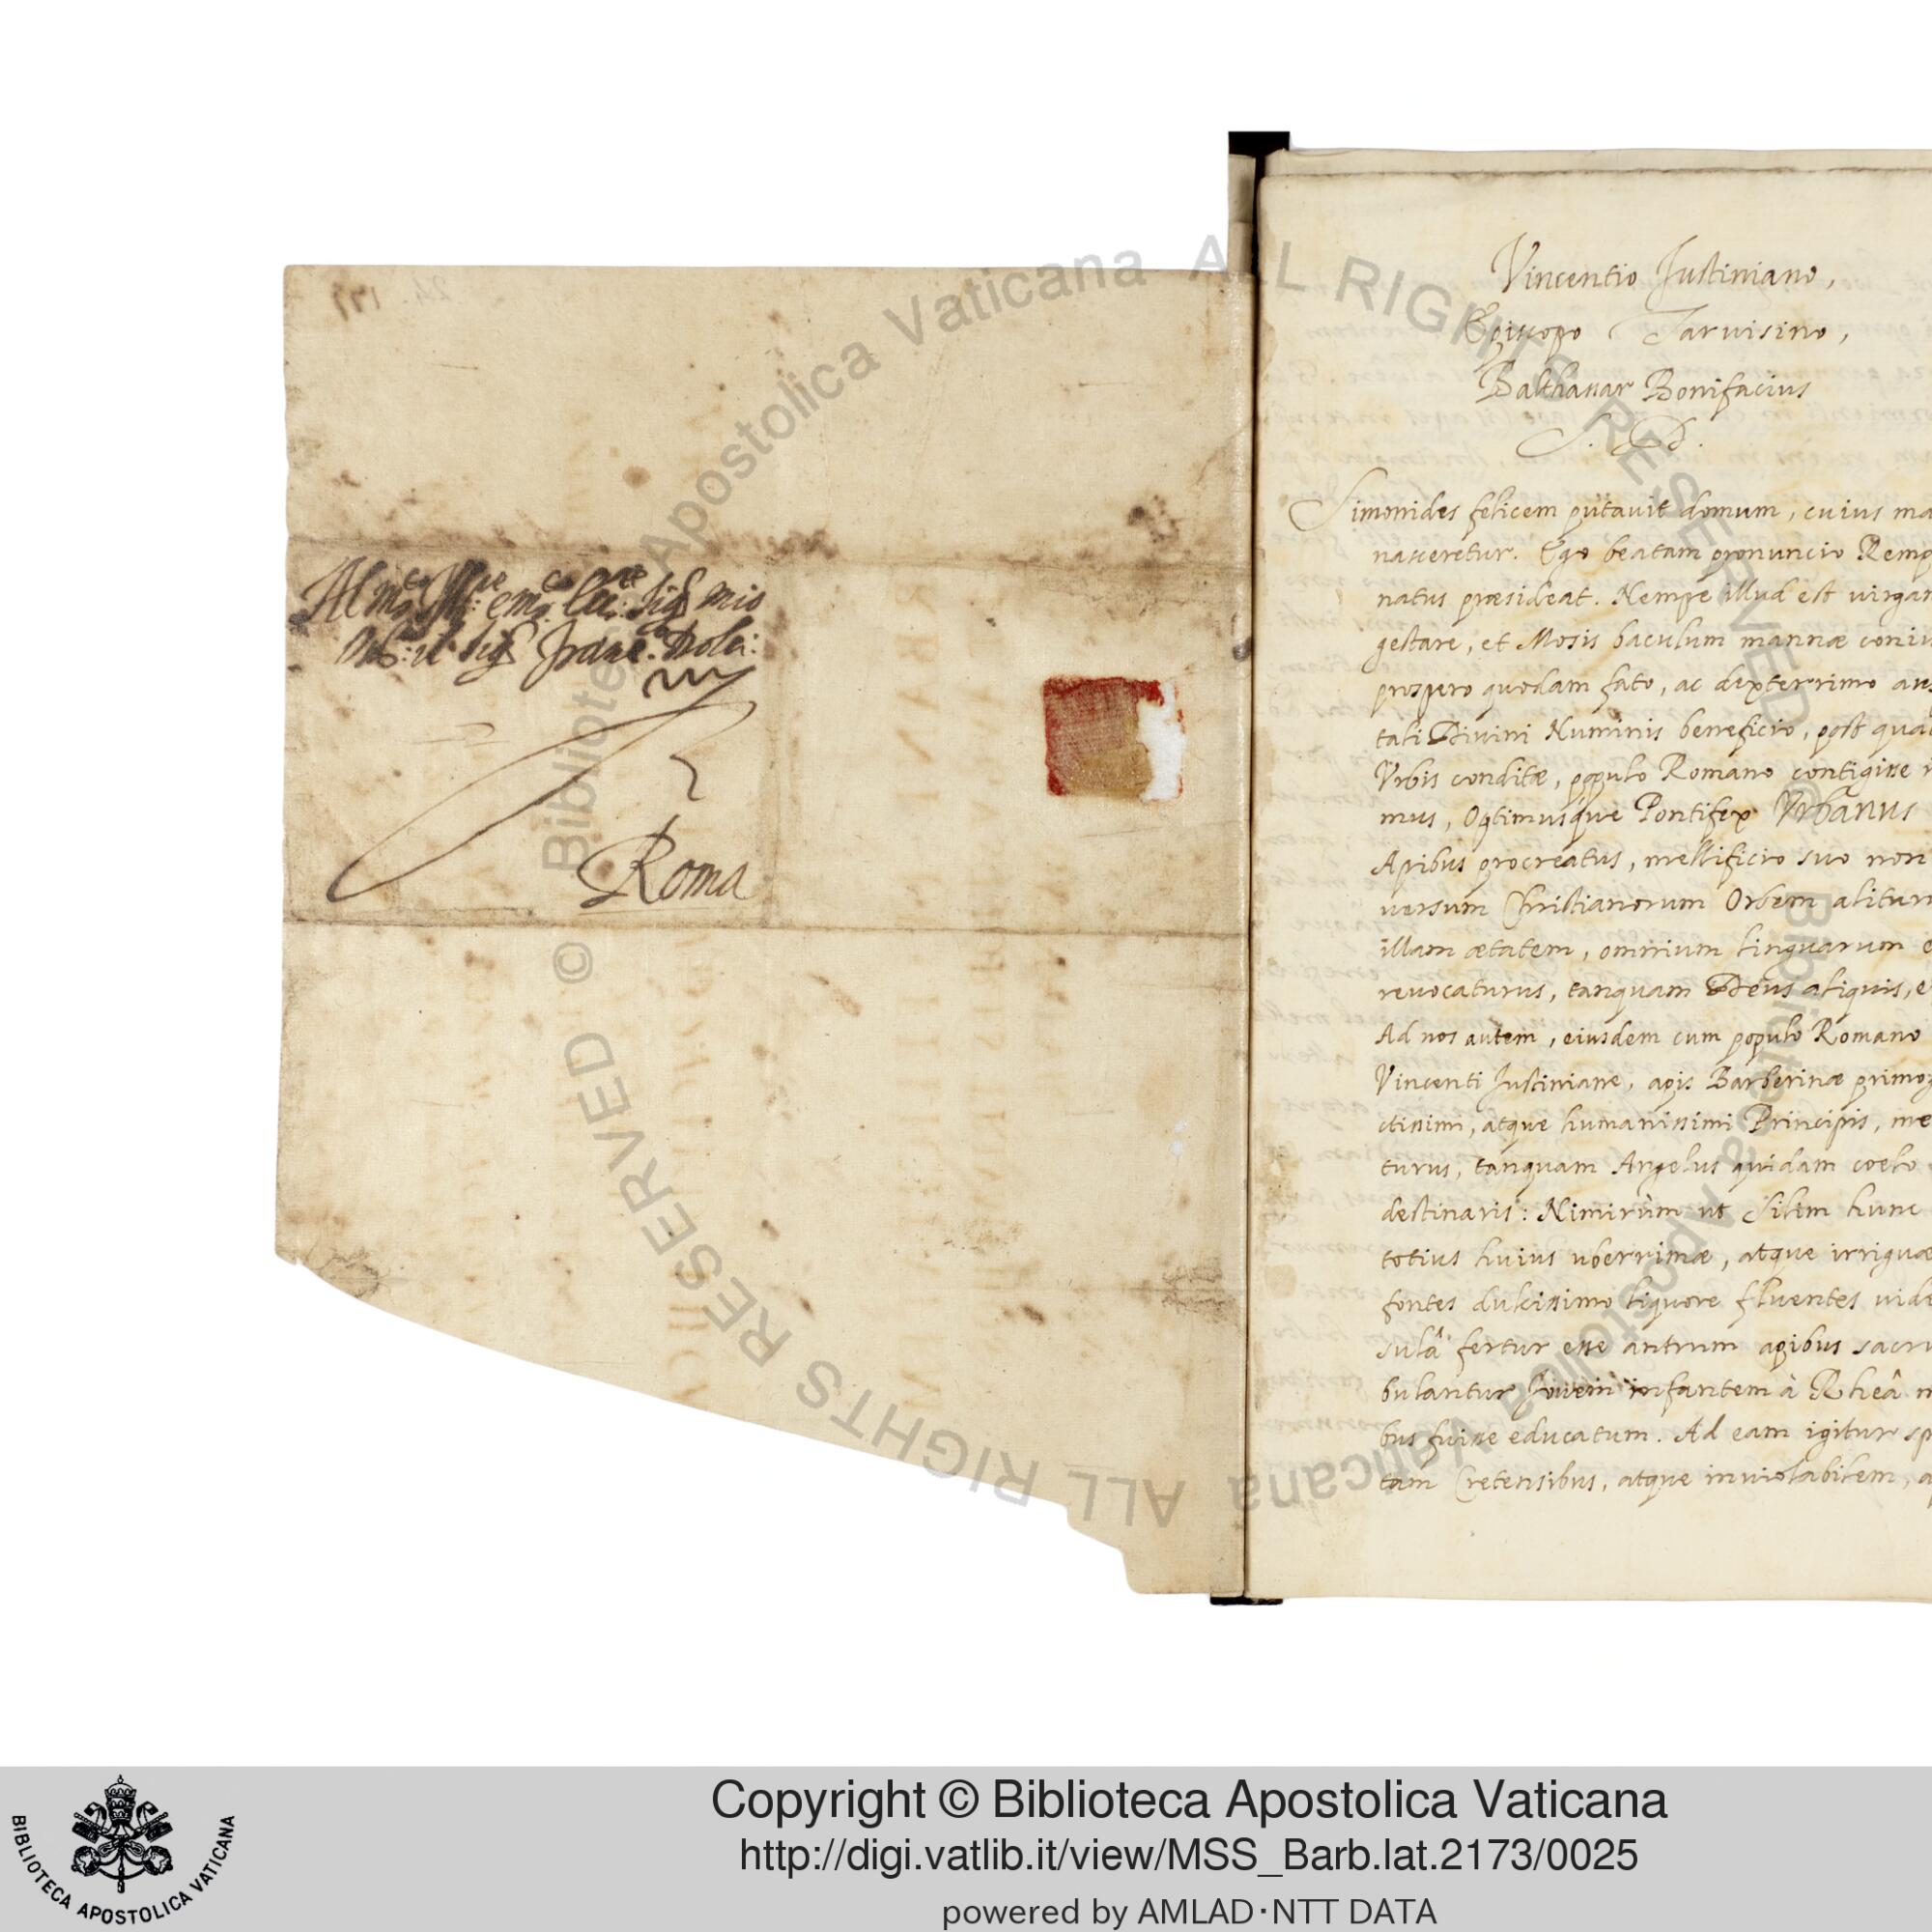 Al m.to Ill:re e m.to Ecc:te Sig.r mio
Oss:mo il Sig.r
Roma
Vincentio Justiniano,
Episcopo Tarvisino,
Balthassar Bonifacius
S. D.
Simonides felicem putavit domum, cuius
nasceretur. Ego beatam pronuncio
natus præsideat. Nempe illud est
gestare, et Mosis baculum mannæ
prospero quodam fato, ac dexterrimo
tali Divini Numinis beneficio, post
Vrbis conditæ, populo Romano contigisse
mus, Optimusque Pontifex Vrbanus
Apibus procreatus, mellificio suo non
versum Christianorum Orbem
illam ætatem, omnium linguarum
revocaturus, tanquam Deus aliquis,
Ad nos autem, eiusdem cum populo Romano
Vincenti Justiniane, apis Barberinæ
ctissimi, atque humanissimi Principis,
turus, tanquam Angelus quidam coelo
destinaris: Nimirùm ut Silim hunc
totius huius uberrimæ, atque irriguæ
fontes dulcissimo liquore fluentes
sulâ fertur esse antrum apibus
bulantur Jovem infantem à Rheâ
bus fuisse educatum. Ad eam igitur
tam Cretensibus, atque inviolabilem,
© Biblioteca Apostolica Vaticana ALL RIGHTS RESERVED
© Biblioteca Apostolica Vaticana ALL RIGHTS RESERVED
BIBLIOTECA APOSTOLICA VATICANA
Copyright © Biblioteca Apostolica Vaticana
http://digi.vatlib.it/view/MSS_Barb.lat.2173/0025
powered by AMLAD·NTT DATA